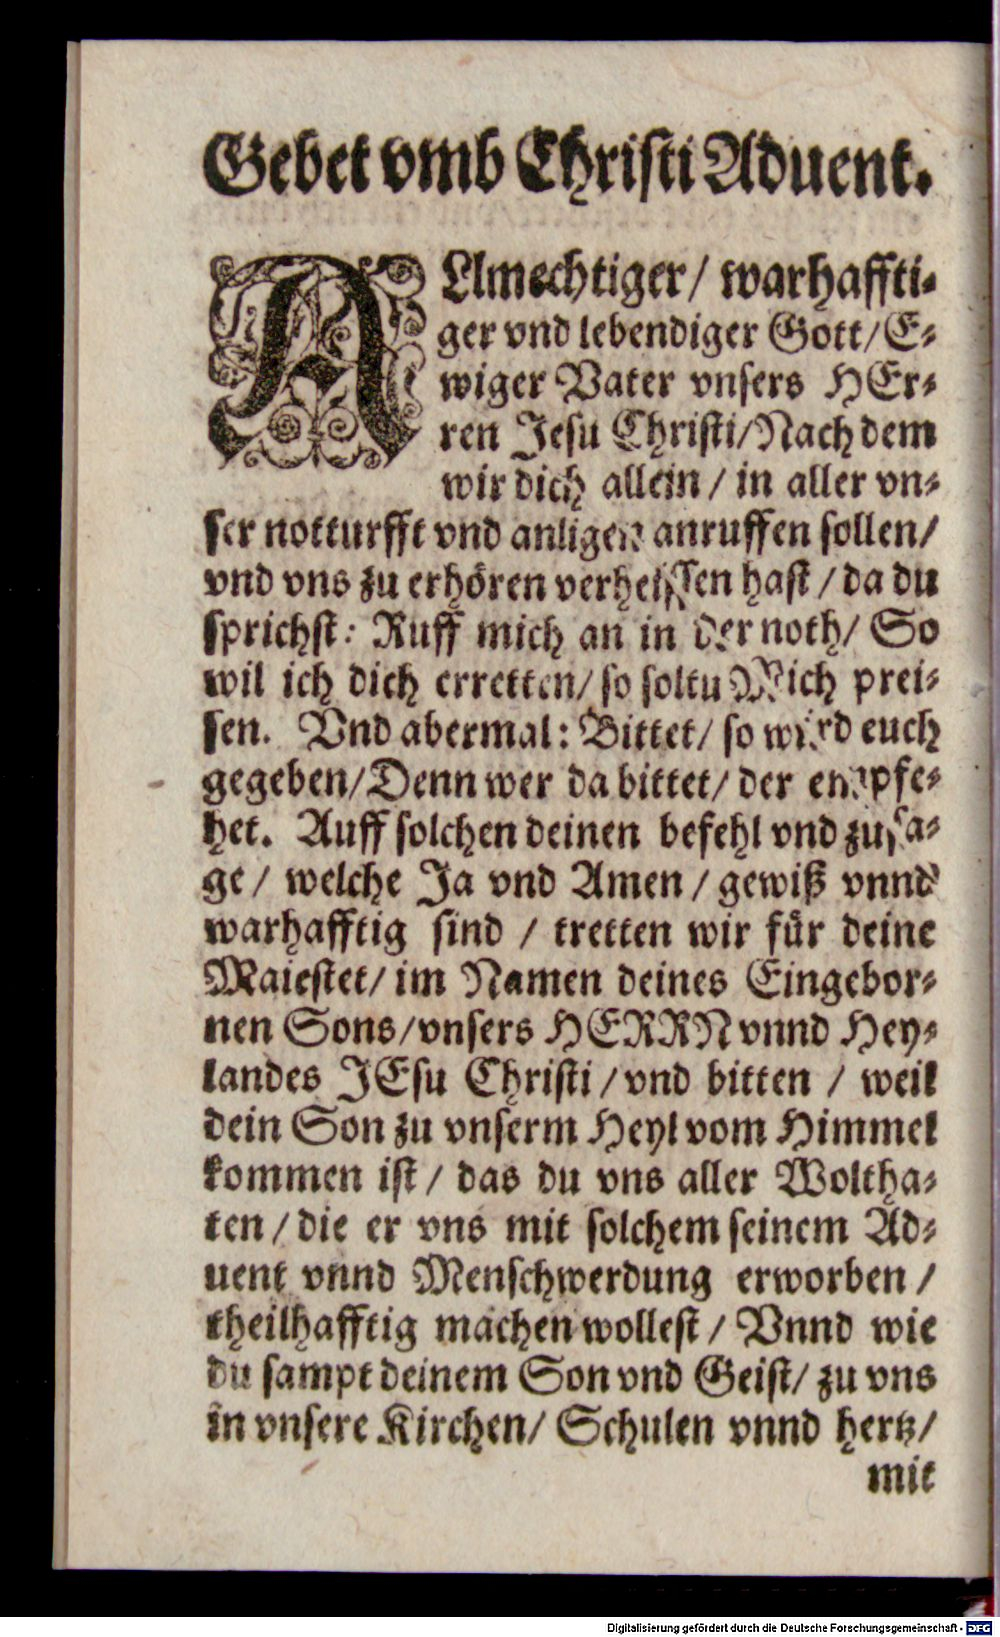 Gebet vmb Christi Aduent.
ALlmechtiger/ warhaffti-
ger vnd lebendiger Gott/ E-
wiger Vater vnsers HEr-
ren Jesu Christi/ Nach dem
wir dich allein/ in aller vn-
ser notturfft vnd anligen anruffen sollen/
vnd vns zu erhören verheissen hast/ da du
sprichst: Ruff mich an in der noth/ So
wil ich dich erretten/ so soltu Mich prei-
sen. Vnd abermal: Bittet/ so wird euch
gegeben/ Denn wer da bittet/ der empfe-
het. Auff solchen deinen befehl vnd zusa-
ge/ welche Ja vnd Amen/ gewiß vnnd
warhafftig sind/ tretten wir für deine
Maiestet/ im Namen deines Eingebor-
nen Sons/ vnsers HERRN vnnd Hey-
landes JEsu Christi/ vnd bitten/ weil
dein Son zu vnserm Heyl vom Himmel
kommen ist/ das du vns aller Woltha-
ten/ die er vns mit solchem seinem Ad-
uent vnnd Menschwerdung erworben/
theilhafftig machen wollest/ Vnnd wie
du sampt deinem Son vnd Geist/ zu vns
in vnsere Kirchen/ Schulen vnnd hertz/
mit
Digitalisierung gefördert durch die Deutsche Forschungsgemeinschaft - DFG